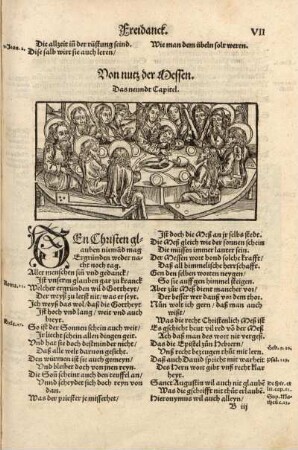 Freidanck. VII
Die allzeit in der rüstung seind.
Dise salb wirt sie auch leren/
Wie man dem übeln solt weren.
Von nutz der Messen.
Das neundt Capitel.
DEn Christen gl-
auben niemãd mag
Ergründen weder na-
cht noch tag.
Aller menschen sin vnd gedanck/
Ist vnserm glauben gar zu kranck
Welcher ergründen wil d Gottheyt/
Der weyß zu letst nit/ was er seyt.
Ich weyß das wol/ das die Gottheyt
Ist hoch vnd lang/ weit vnd auch
breyt.
So ist der Sonnen schein auch weit/
Ir liecht allem dem glantz geyt.
Vnd hat sie doch destminder nicht/
Das auch all welt dauon gesicht.
Den würmen ist sie auch gemeyn/
Vnd bleibt doch von jnen reyn.
Die Soñ scheint auch den teuffel an/
Vnd scheydet sich doch reyn von
dan.
Was der priester je missethet/
Ist doch die Meß an jr selbs stedt.
Die Meß gleich wie der sonnen schein
Die müssen immer lauter sein.
Der Messen wort hond solche krafft/
Daß all himmelsche herrschafft.
Gen den selben worten neygen/
So sie auff gen himmel steigen.
Aber zũ Meß dienet mancher vor/
der besser wer dauß vor dem thor.
Nun wolt ich gern/ daß man auch
wist/
Was die recht Christenlich Meß ist
Es geschicht heut vil red vō der Meß
Ach daß man des wort nit vergeß.
Das die Epistel zũn Hebreern/
Vns recht bezeugen thũt mit lern.
Daß auch Dauid spricht mit warheit
Des Hern wort gibt vnß recht klar
heyt.
Sanct Augustin wil auch nit glaubē
Was die gschrifft nit thũt erlaubē.
Hieronymus wil auch alleyn/
B iij